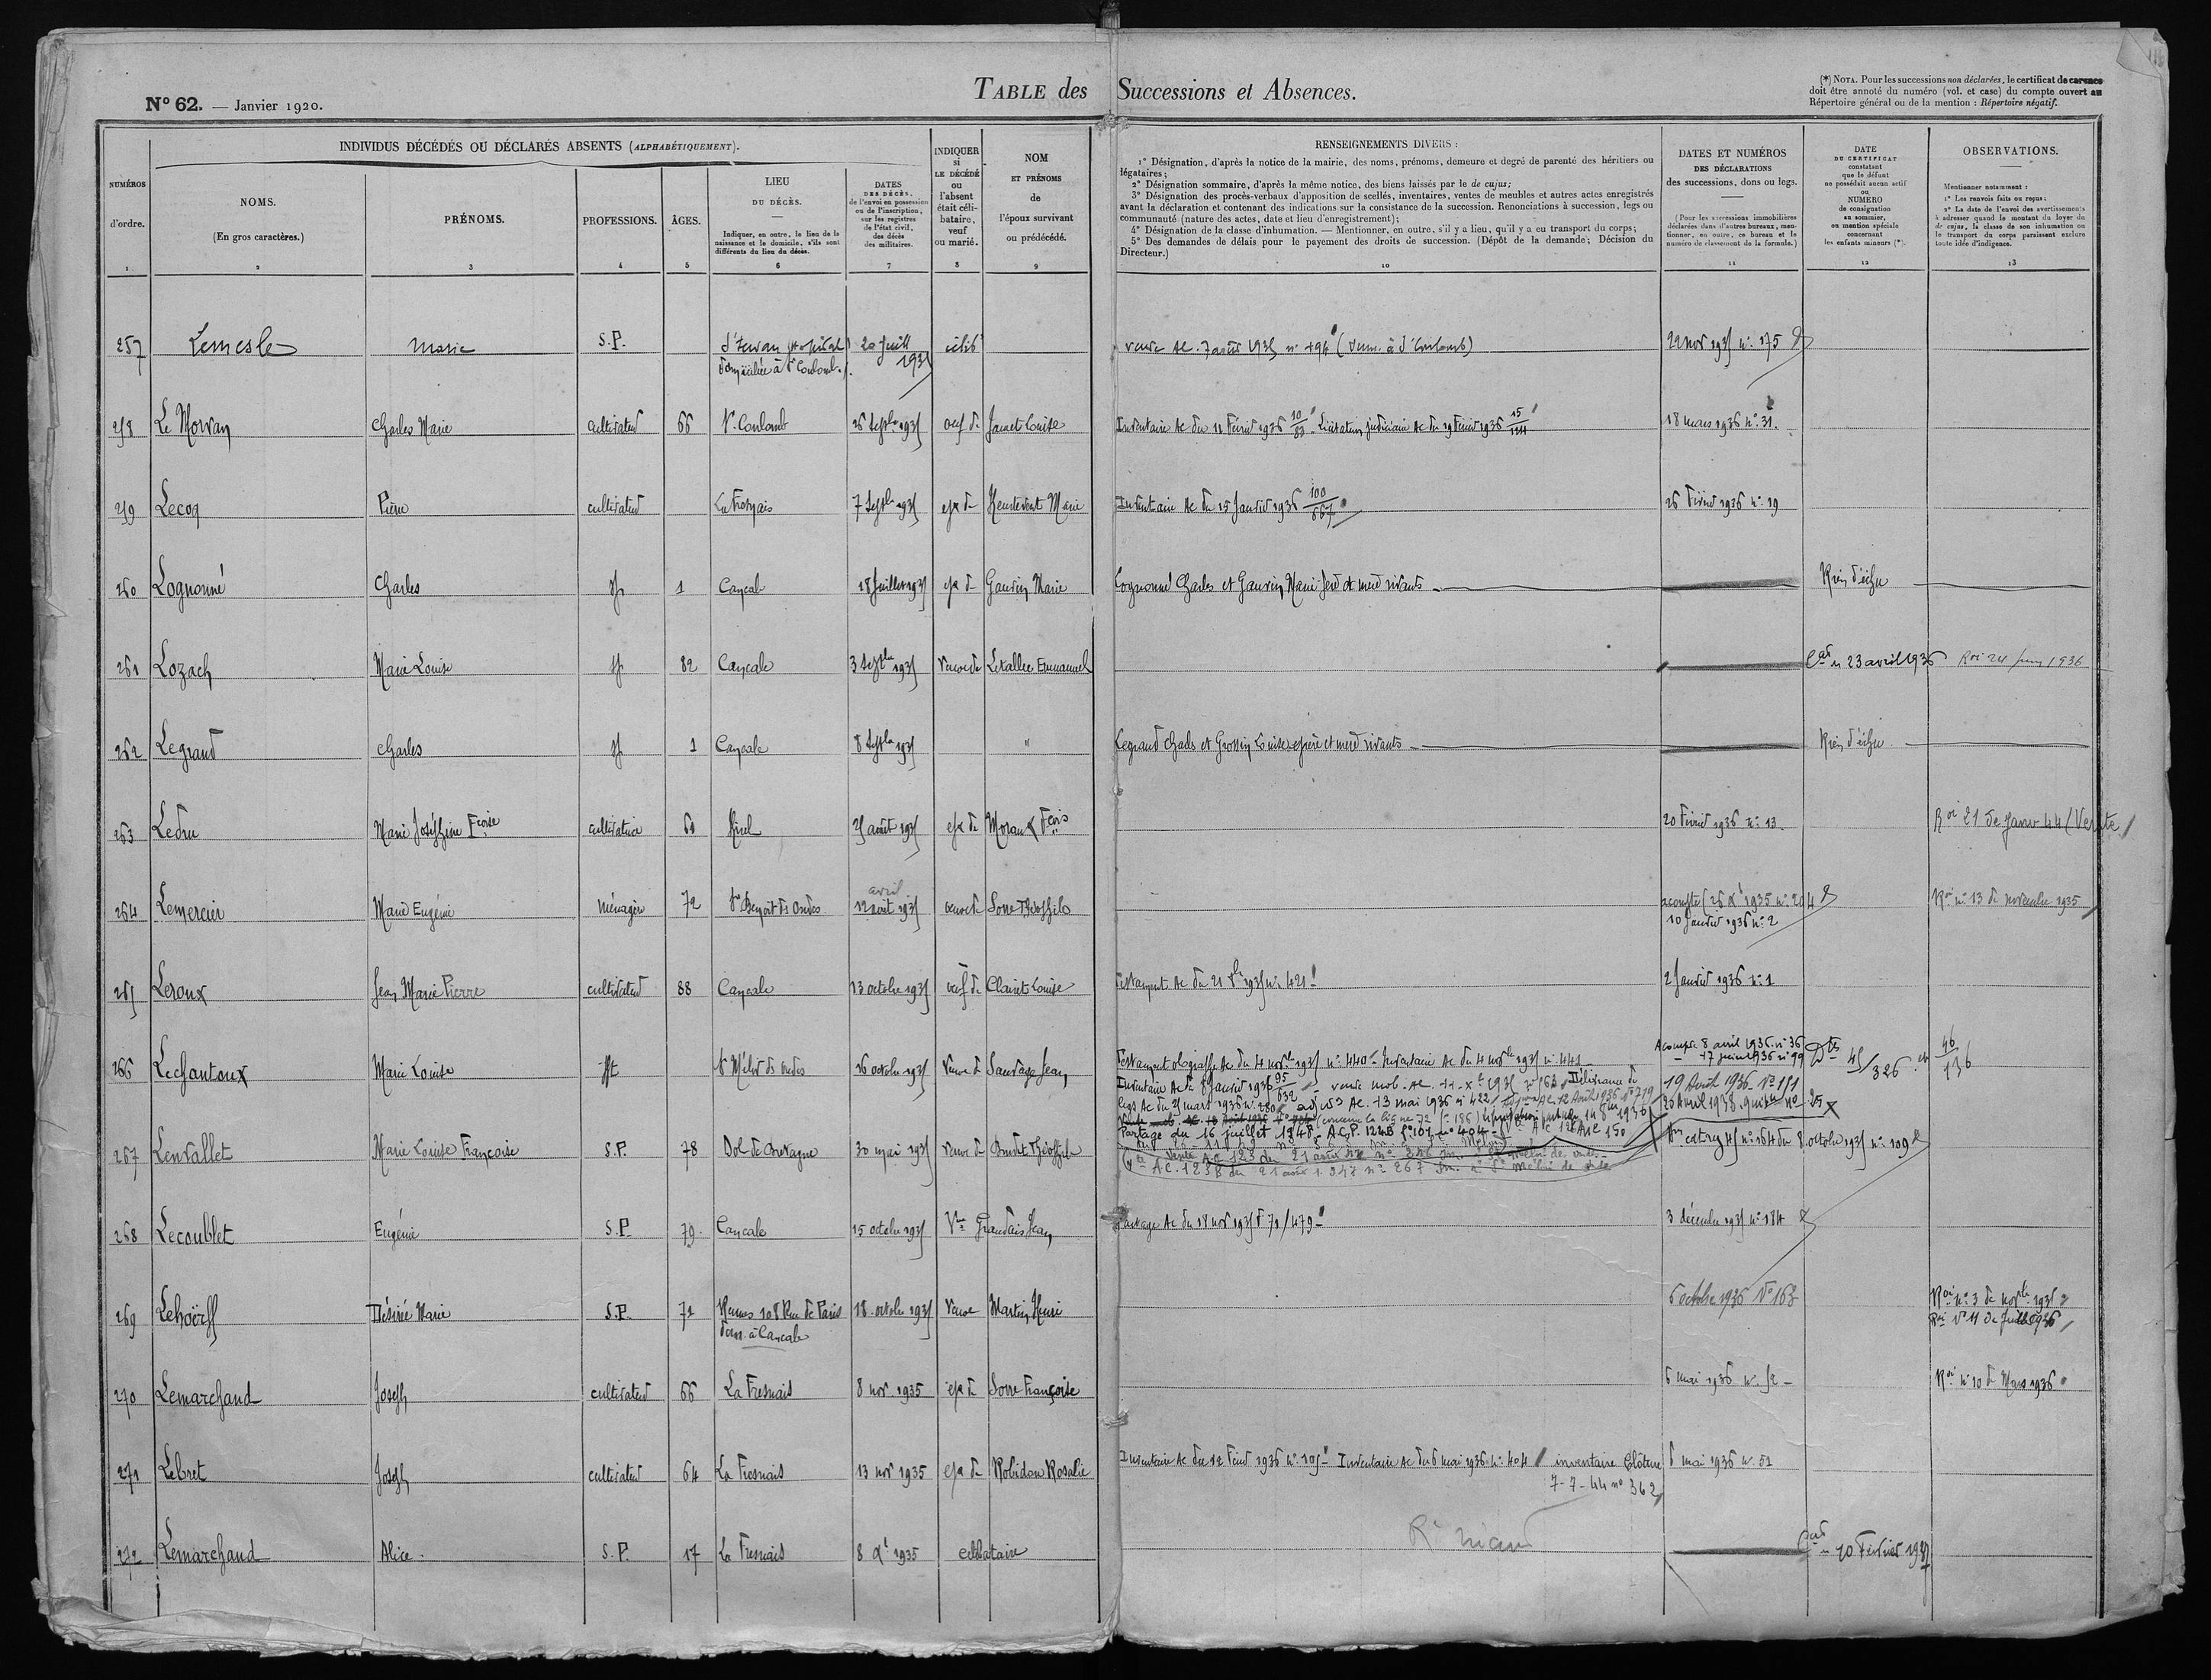 N° 62. — Janvier 1920.
TABLE des Successions et Absences.
(*) NOTA. Pour les successions non déclarées, le certificat de carence
doit être annoté du numéro (vol. et case) du compte ouvert au
Répertoire général ou de la mention : Répertoire négatif.
NUMÉROS
d'ordre.
1
INDIVIDUS DÉCÉDÉS OU DÉCLARÉS ABSENTS (ALPHABÉTIQUEMENT).
NOMS.
(En gros caractères.)
2
PRÉNOMS.
3
PROFESSIONS.
4
ÂGES.
5
LIEU
DU DÉCÈS.
Indiquer, en outre, le lieu de la
naissance et le domicile, s'ils sont
différents du lieu du décès.
6
DATES
DES DÉCÈS,
de l'envoi en possession
ou de l'inscription,
sur les registres
de l'état civil,
des décès
des militaires.
7
INDIQUER
si
LE DÉCÉDÉ
ou
l'absent
était céli-
bataire,
veuf
ou marié.
8
NOM
ET PRÉNOMS
de
l'époux survivant
ou prédécédé.
9
RENSEIGNEMENTS DIVERS :
1° Désignation, d'après la notice de la mairie, des noms, prénoms, demeure et degré de parenté des héritiers ou
légataires;
2° Désignation sommaire, d'après la même notice, des biens laissés par le de cujus;
3° Désignation des procès-verbaux d'apposition de scellés, inventaires, ventes de meubles et autres actes enregistrés
avant la déclaration et contenant des indications sur la consistance de la succession. Renonciations à succession, legs ou
communauté (nature des actes, date et lieu d'enregistrement);
4° Désignation de la classe d'inhumation. — Mentionner, en outre, s'il y a lieu, qu'il y a eu transport du corps;
5° Des demandes de délais pour le payement des droits de succession. (Dépôt de la demande; Décision du
Directeur.)
10
DATES ET NUMÉROS
DES DÉCLARATIONS
des successions, dons ou legs.
(Pour les successions immobilières
déclarées dans d'autres bureaux, men-
tionner, en outre, ce bureau et le
numéro de classement de la formule.)
11
DATE
DU CERTIFICAT
constatant
que le défunt
ne possédait aucun actif
ou
NUMÉRO
de consignation
au sommier,
ou mention spéciale
concernant
les enfants mineurs (*).
12
OBSERVATIONS.
Mentionner notamment :
1° Les renvois faits ou reçus;
2° La date de l'envoi des avertissements
à adresser quand le montant du loyer du
de cujus, la classe de son inhumation ou
le transport du corps paraissent exclure
toute idée d'indigence.
13
257 Lemesle Marie S.P. St Servan (hopital) 20 Juill 1935 célib
domiciliée à St Coulomb
vente Ac. 7 août 1935 n° 494 22 nov 1935 n° 175
258 Le Morvan Charles Marie cultivateur 66 St Coulomb 26 Septbre 1935 veuf de Jamet Louise Inventaire Ac du 11 Février 1936 10/83 Licitation judiciaire Ac du 19 Février 1936 15/ 18 mars 1936 n° 31.
259 Lecoq Pierre cultivateur La Fresnais 7 Septbre 1935 epx de Marie Inventaire Ac du 15 Janvier 1936 100/667 26 Février 1936 n° 19
260 Lognonné Charles sp 1 Cancale 18 Juillet 1935 epx de Gauvin Marie Lognonné Charles et Gauvin Marie père et mère vivants Rien d'échu
261 Lozach Marie Louise sp 82 Cancale 3 Septbre 1935 Veuve de Levallee Emmanuel 23 avril 1936 Roi 24 juin 1936
262 Legrand Charles sp 1 Cancale 8 Septbre 1935 " Legrand Charles et Grossin Louise père et mère vivants Rien d'échu
263 Ledru Marie Joséphine Fcoise cultivatrice 61 Hirel 25 août 1935 epx de Moraux Fcois 20 Février 1936 n° 13. Roi 21 de Janv 44 (Vente)
264 Lemercier Marie Eugénie Ménagère 72 St Benoit des Ondes 12 août avril 1935 veuve de Sorre Théophile acompte (26 Xbre 1935 n° 204
10 Janvier 1936 n° 2 Roi n° 13 de novembre 1935
265 Leroux Jean Marie Pierre cultivateur 88 Cancale 13 octobre 1935 veuf de Clairet Louise Testament Ac du 21 1935 n° 421 2 Janvier 1936 n° 1
266 Lechantoux Marie Louise St Méloir des Ondes 16 octobre 1935 Veuve de Sauvage Jean
Testament olographe Ac du 4 novbre 1935 n° 440 - Inventaire Ac du 4 novbre 1935 n° 441
Inventaire Ac du 8 Janvier 1936 95/632 vente mob. Ac 11 Xbre 1935 Délivrance de
legs Ac du mars 1936 n° 280 Ac. 13 mai 1936 n° 422
Partage du 16 juillet 1948 n° 404
Vte AC. 123B du 21 août 1947 n° 267 Im. à St Méloir des Ondes
Acompte 8 avril 1936 n° 36
17 juin 1936 n° 99
19 Août 1936 N° 151
20 Avril 1938
Dts 45/326 et 46/136
267 Levallet Marie Louise Françoise S.P. 78 Dol de Bretagne 30 mai 1935 Veuve de Théophile n° 164 du 8 octobre 1935 n° 109
268 Lecoublet Eugénie S.P. 79 Cancale 15 octobre 1935 Vve Jean Partage Ac du 18 nov 1935 71/479 3 décembre 1935 n° 184
269 Lehoërff Désirée Marie S.P. 71 Rennes 108 Rue de Paris 18 octobre 1935 Veuve Martin Henri
dom. à Cancale 6 octobre 1936 N° 163 Roi n° 3 de novbre 1935
Roi N° 11 de Juillet 1936
270 Lemarchand Joseph cultivateur 66 La Fresnais 8 nov. 1935 epx de Sorre Françoise 6 mai 1936 n° 52 Roi n° 10 de Mars 1936
271 Lebret Joseph cultivateur 64 La Fresnais 13 nov 1935 epx de Robidou Rosalie Inventaire Ac du 12 Févr 1936 n° 105 Inventaire Ac du 6 mai 1936 n° 404 inventaire Clôture
7-7-44 n° 362 6 mai 1936 n° 51
272 Lemarchand Alice S.P. 17 La Fresnais 8 Xbre 1935 célibataire Rt néant 10 Février 1937